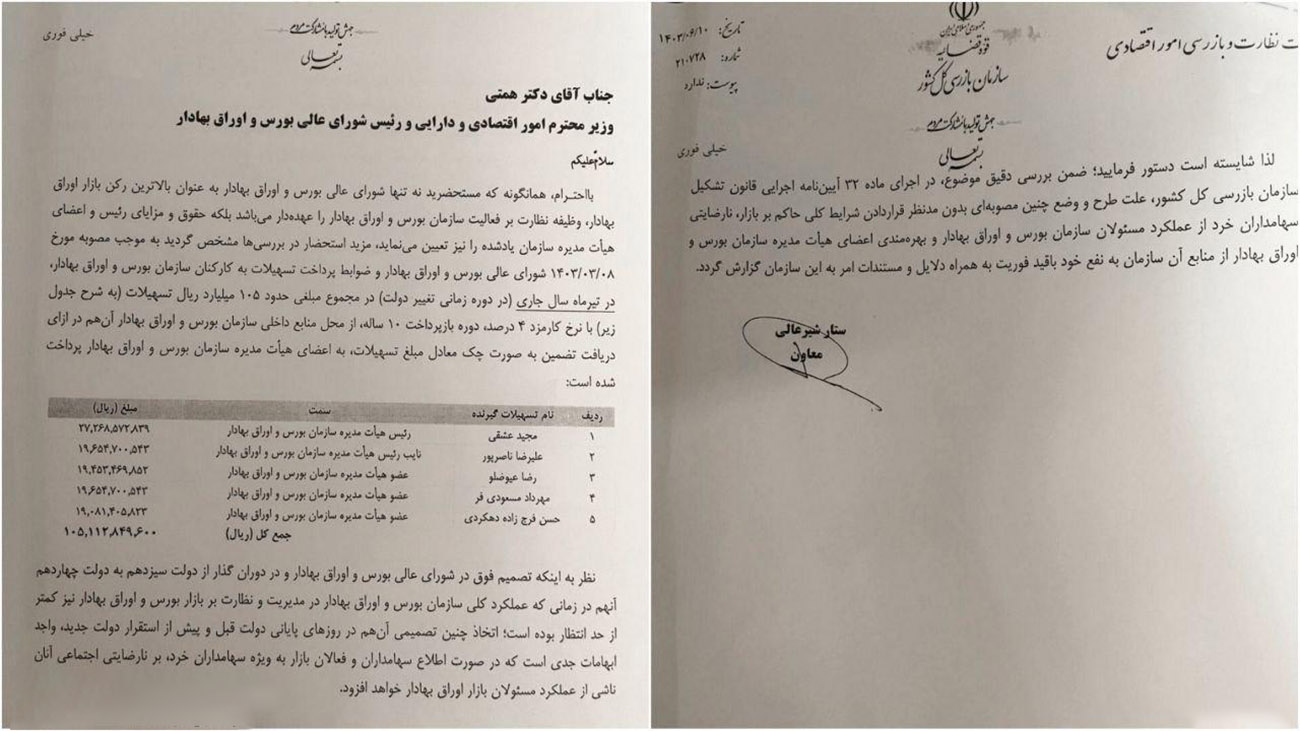 جهش تولید با مشارکت مردم
خیلی فوری
بسمه تعالی
جناب آقای دکتر همتی
وزیر محترم امور اقتصادی و دارایی و رئیس شورای عالی بورس و اوراق بهادار
سلام علیکم
بااحترام، همانگونه که مستحضرید نه تنها شورای عالی بورس و اوراق بهادار به عنوان بالاترین رکن بازار اوراق
بهادار، وظیفه نظارت بر فعالیت سازمان بورس و اوراق بهادار را عهده‌دار می‌باشد بلکه حقوق و مزایای رئیس و اعضای
هیأت مدیره سازمان یادشده را نیز تعیین می‌نماید، مزید استحضار در بررسی‌ها مشخص گردید به موجب مصوبه مورخ
۱۴۰۳/۰۳/۰۸ شورای عالی بورس و اوراق بهادار و ضوابط پرداخت تسهیلات به کارکنان سازمان بورس و اوراق بهادار،
در تیرماه سال جاری (در دوره زمانی تغییر دولت) در مجموع مبلغی حدود ۱۰۵ میلیارد ریال تسهیلات (به شرح جدول
زیر) با نرخ کارمزد ۴ درصد، دوره بازپرداخت ۱۰ ساله، از محل منابع داخلی سازمان بورس و اوراق بهادار آن‌هم در ازای
دریافت تضمین به صورت چک معادل مبلغ تسهیلات، به اعضای هیأت مدیره سازمان بورس و اوراق بهادار پرداخت
شده است:
ردیف نام تسهیلات گیرنده سمت مبلغ (ریال)
۱ مجید عشقی رئیس هیأت مدیره سازمان بورس و اوراق بهادار ۲۷,۲۶۸,۵۷۲,۸۳۹
۲ علیرضا ناصرپور نایب رئیس هیأت مدیره سازمان بورس و اوراق بهادار ۱۹,۶۵۴,۷۰۰,۵۴۳
۳ رضا عیوضلو عضو هیأت مدیره سازمان بورس و اوراق بهادار ۱۹,۴۵۳,۴۶۹,۸۵۲
۴ مهرداد مسعودی فر عضو هیأت مدیره سازمان بورس و اوراق بهادار ۱۹,۶۵۴,۷۰۰,۵۴۳
۵ حسن فرج زاده دهکردی عضو هیأت مدیره سازمان بورس و اوراق بهادار ۱۹,۰۸۱,۴۰۵,۸۲۳
جمع کل (ریال) ۱۰۵,۱۱۲,۸۴۹,۶۰۰
نظر به اینکه تصمیم فوق در شورای عالی بورس و اوراق بهادار و در دوران گذار از دولت سیزدهم به دولت چهاردهم
آنهم در زمانی که عملکرد کلی سازمان بورس و اوراق بهادار در مدیریت و نظارت بر بازار بورس و اوراق بهادار نیز کمتر
از حد انتظار بوده است؛ اتخاذ چنین تصمیمی آن‌هم در روزهای پایانی دولت قبل و پیش از استقرار دولت جدید، واجد
ابهامات جدی است که در صورت اطلاع سهامداران و فعالان بازار به ویژه سهامداران خرد، بر نارضایتی اجتماعی آنان
ناشی از عملکرد مسئولان بازار اوراق بهادار خواهد افزود.
جمهوری اسلامی ایران
قوه قضائیه
سازمان بازرسی کل کشور
ت نظارت و بازرسی امور اقتصادی
تاریخ: ۱۴۰۳/۰۶/۱۰
شماره: ۲۱۰۷۲۸
پیوست: ندارد
جهش تولید با مشارکت مردم
خیلی فوری
بسمه تعالی
لذا شایسته است دستور فرمایید؛ ضمن بررسی دقیق موضوع، در اجرای ماده ۳۲ آیین‌نامه اجرایی قانون تشکیل
سازمان بازرسی کل کشور، علت طرح و وضع چنین مصوبه‌ای بدون مدنظر قراردادن شرایط کلی حاکم بر بازار، نارضایتی
سهامداران خرد از عملکرد مسئولان سازمان بورس و اوراق بهادار و بهره‌مندی اعضای هیأت مدیره سازمان بورس و
اوراق بهادار از منابع آن سازمان به نفع خود باقید فوریت به همراه دلایل و مستندات امر به این سازمان گزارش گردد.
ستار شیرعالی
معاون